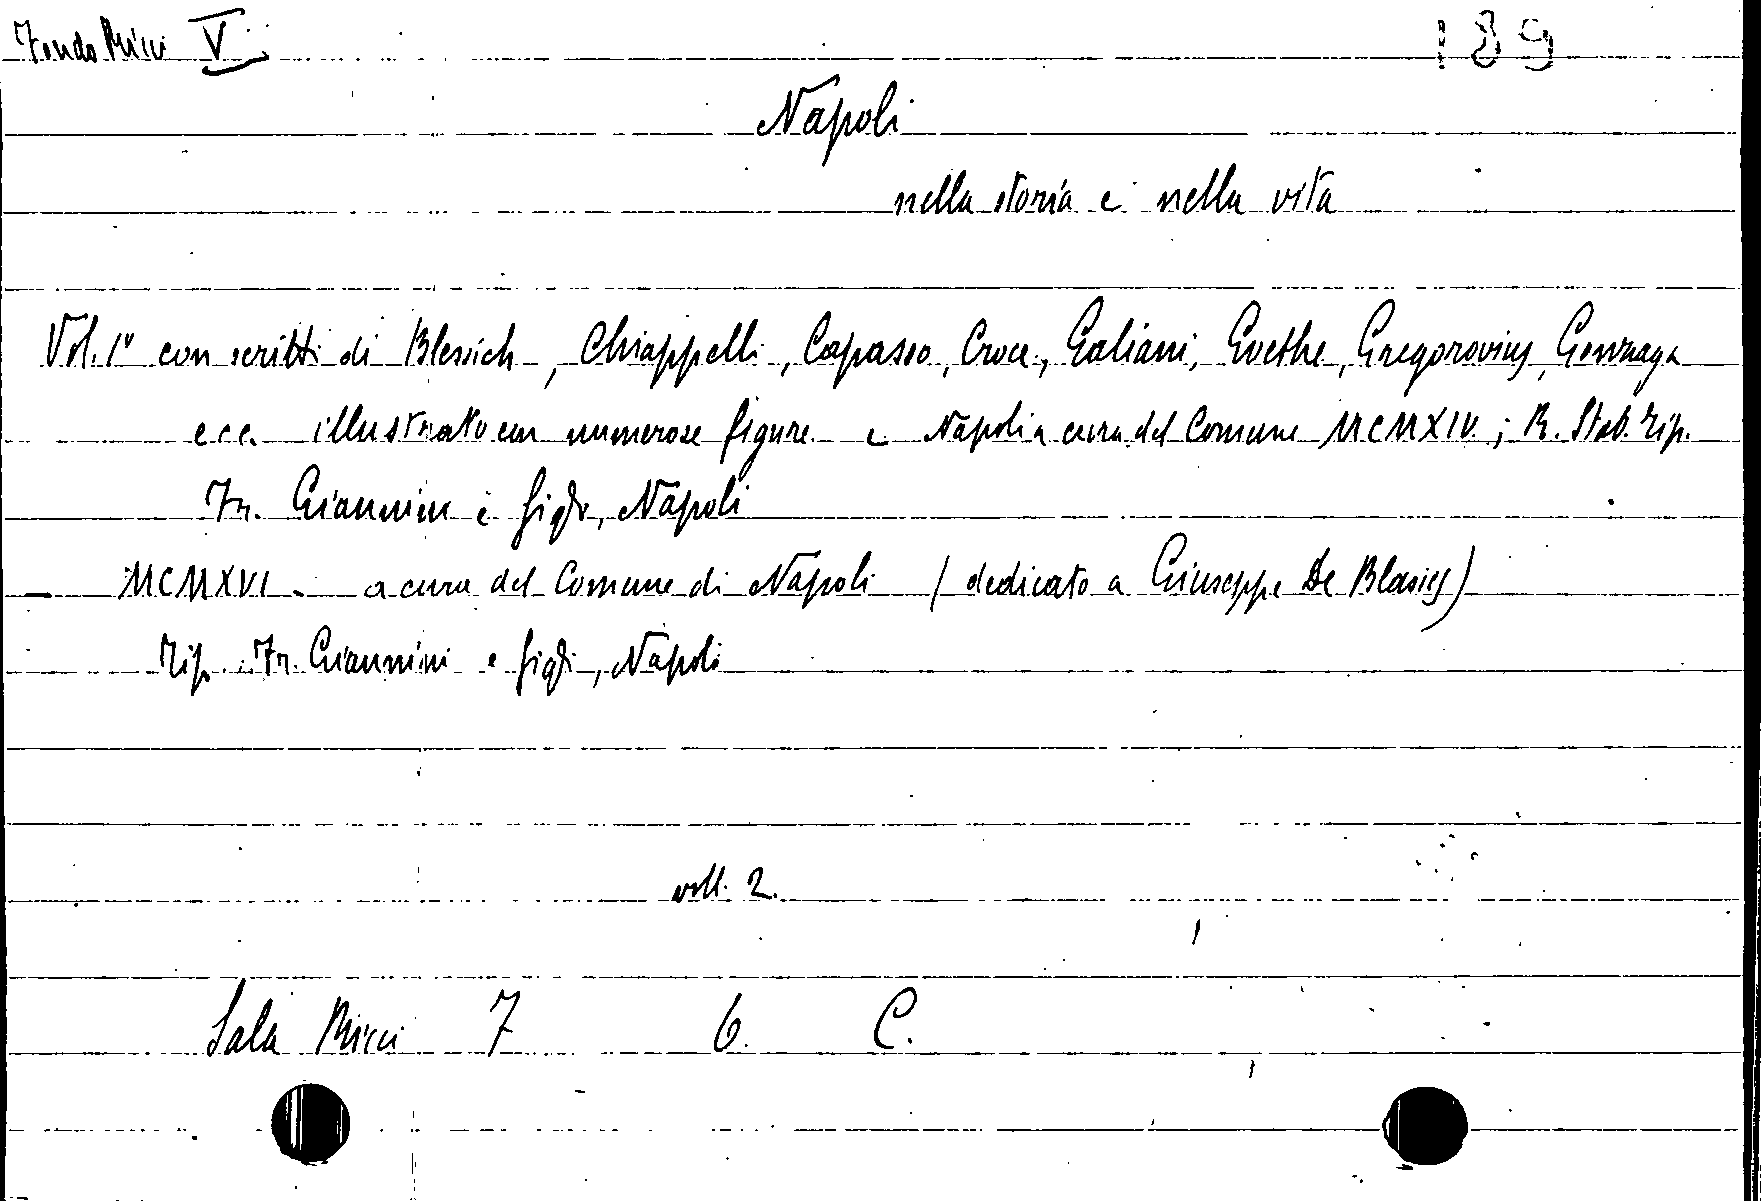 Fondo Ricci V 189
Napoli
nella storia e nella vita
Vol. 1° con scritti di Blessich, Chiappelli, Capasso, Croce, Galiani, Goethe, Gregorovius, Gonzaga
ecc. illustrato con numerose figure e Napoli a cura del Comune MCMXIV; R. Stab. Tip.
Fr. Giannini e figli, Napoli
— MCMXVI - a cura del Comune di Napoli (dedicato a Giuseppe De Blasiis)
Tip. Fr. Giannini e figli, Napoli
voll. 2.
Sala Ricci 7 6. C.